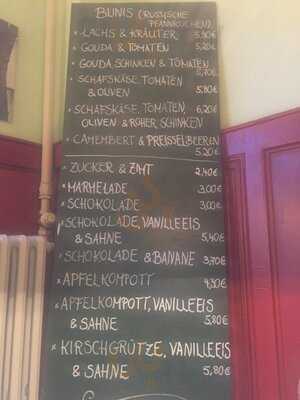 BLINIS (RUSSISCHE
PFANNKUCHEN)
* LACHS & KRÄUTER 5,90€
* GOUDA & TOMATEN 5,20€
* GOUDA, SCHINKEN & TOMATEN
5,70€
* SCHAFSKÄSE, TOMATEN
& OLIVEN 5,80€
* SCHAFSKÄSE, TOMATEN, 6,20€
OLIVEN & ROHER SCHINKEN
* CAMEMBERT & PREISSELBEEREN
5,20€
* ZUCKER & ZIMT 2,40€
* MARMELADE 3,00€
* SCHOKOLADE 3,00€
* SCHOKOLADE, VANILLEEIS
& SAHNE 5,40€
* SCHOKOLADE & BANANE 3,70€
* APFELKOMPOTT
* APFELKOMPOTT, VANILLEEIS
& SAHNE 5,80€
* KIRSCHGRÜTZE, VANILLEEIS
& SAHNE 5,80€